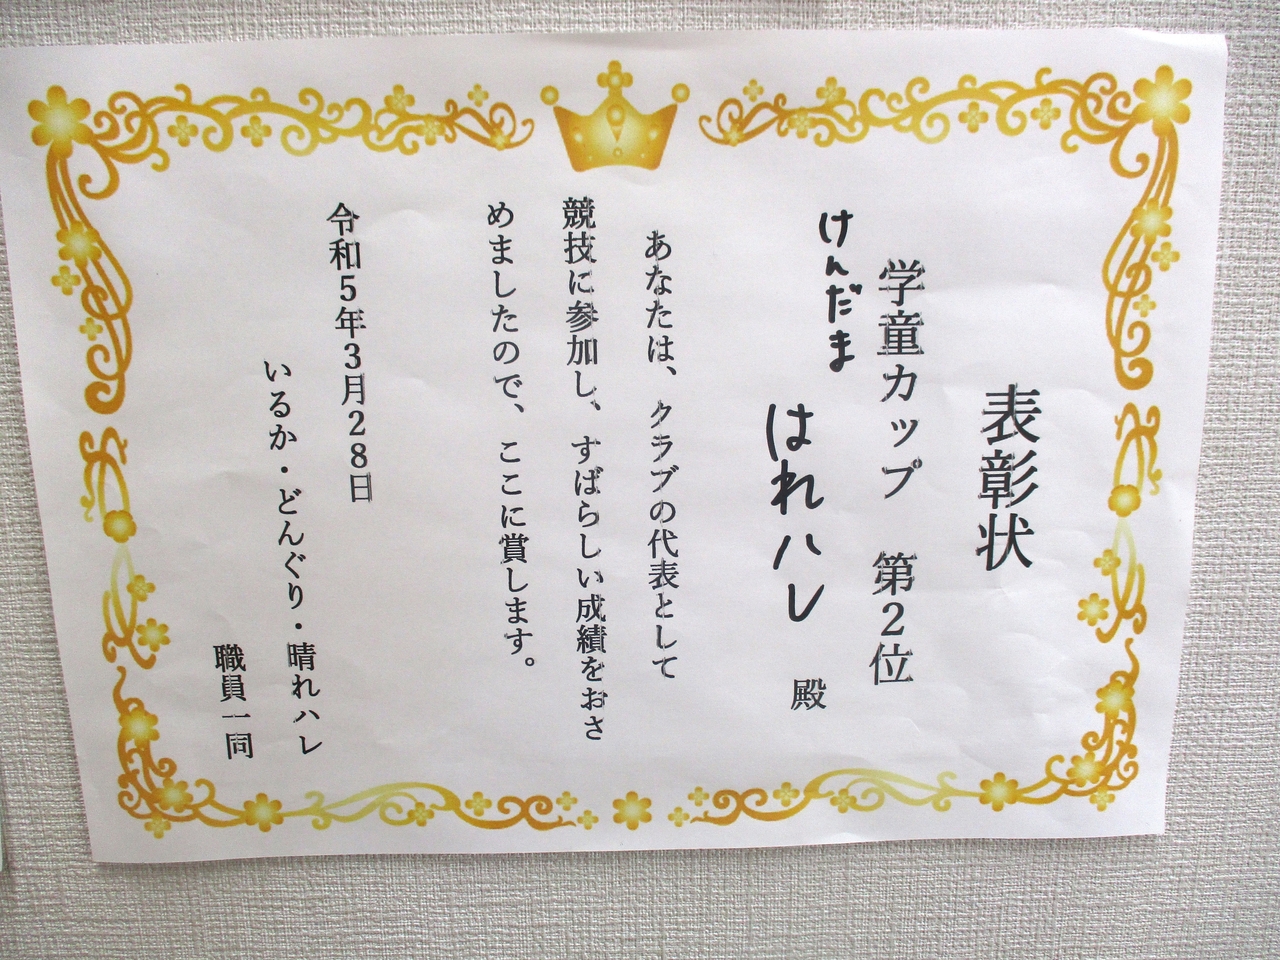 表彰状
学童カップ 第2位
けんだま
はれハレ 殿
あなたは、クラブの代表として
競技に参加し、すばらしい成績をおさ
めましたので、ここに賞します。
令和5年3月28日
いるか・どんぐり・晴れハレ
職員一同